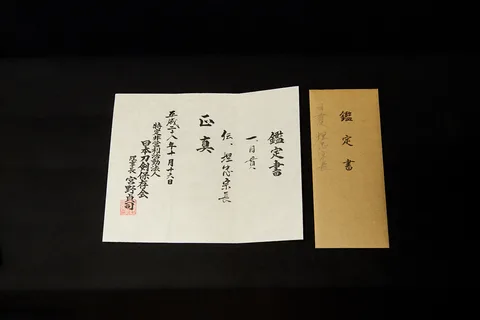 鑑定書
一、目貫
伝、埋忠宗長
正真
平成二十八年十月十六日
特定非営利活動法人
日本刀剣保存会
理事長 宮野貞司
鑑定書